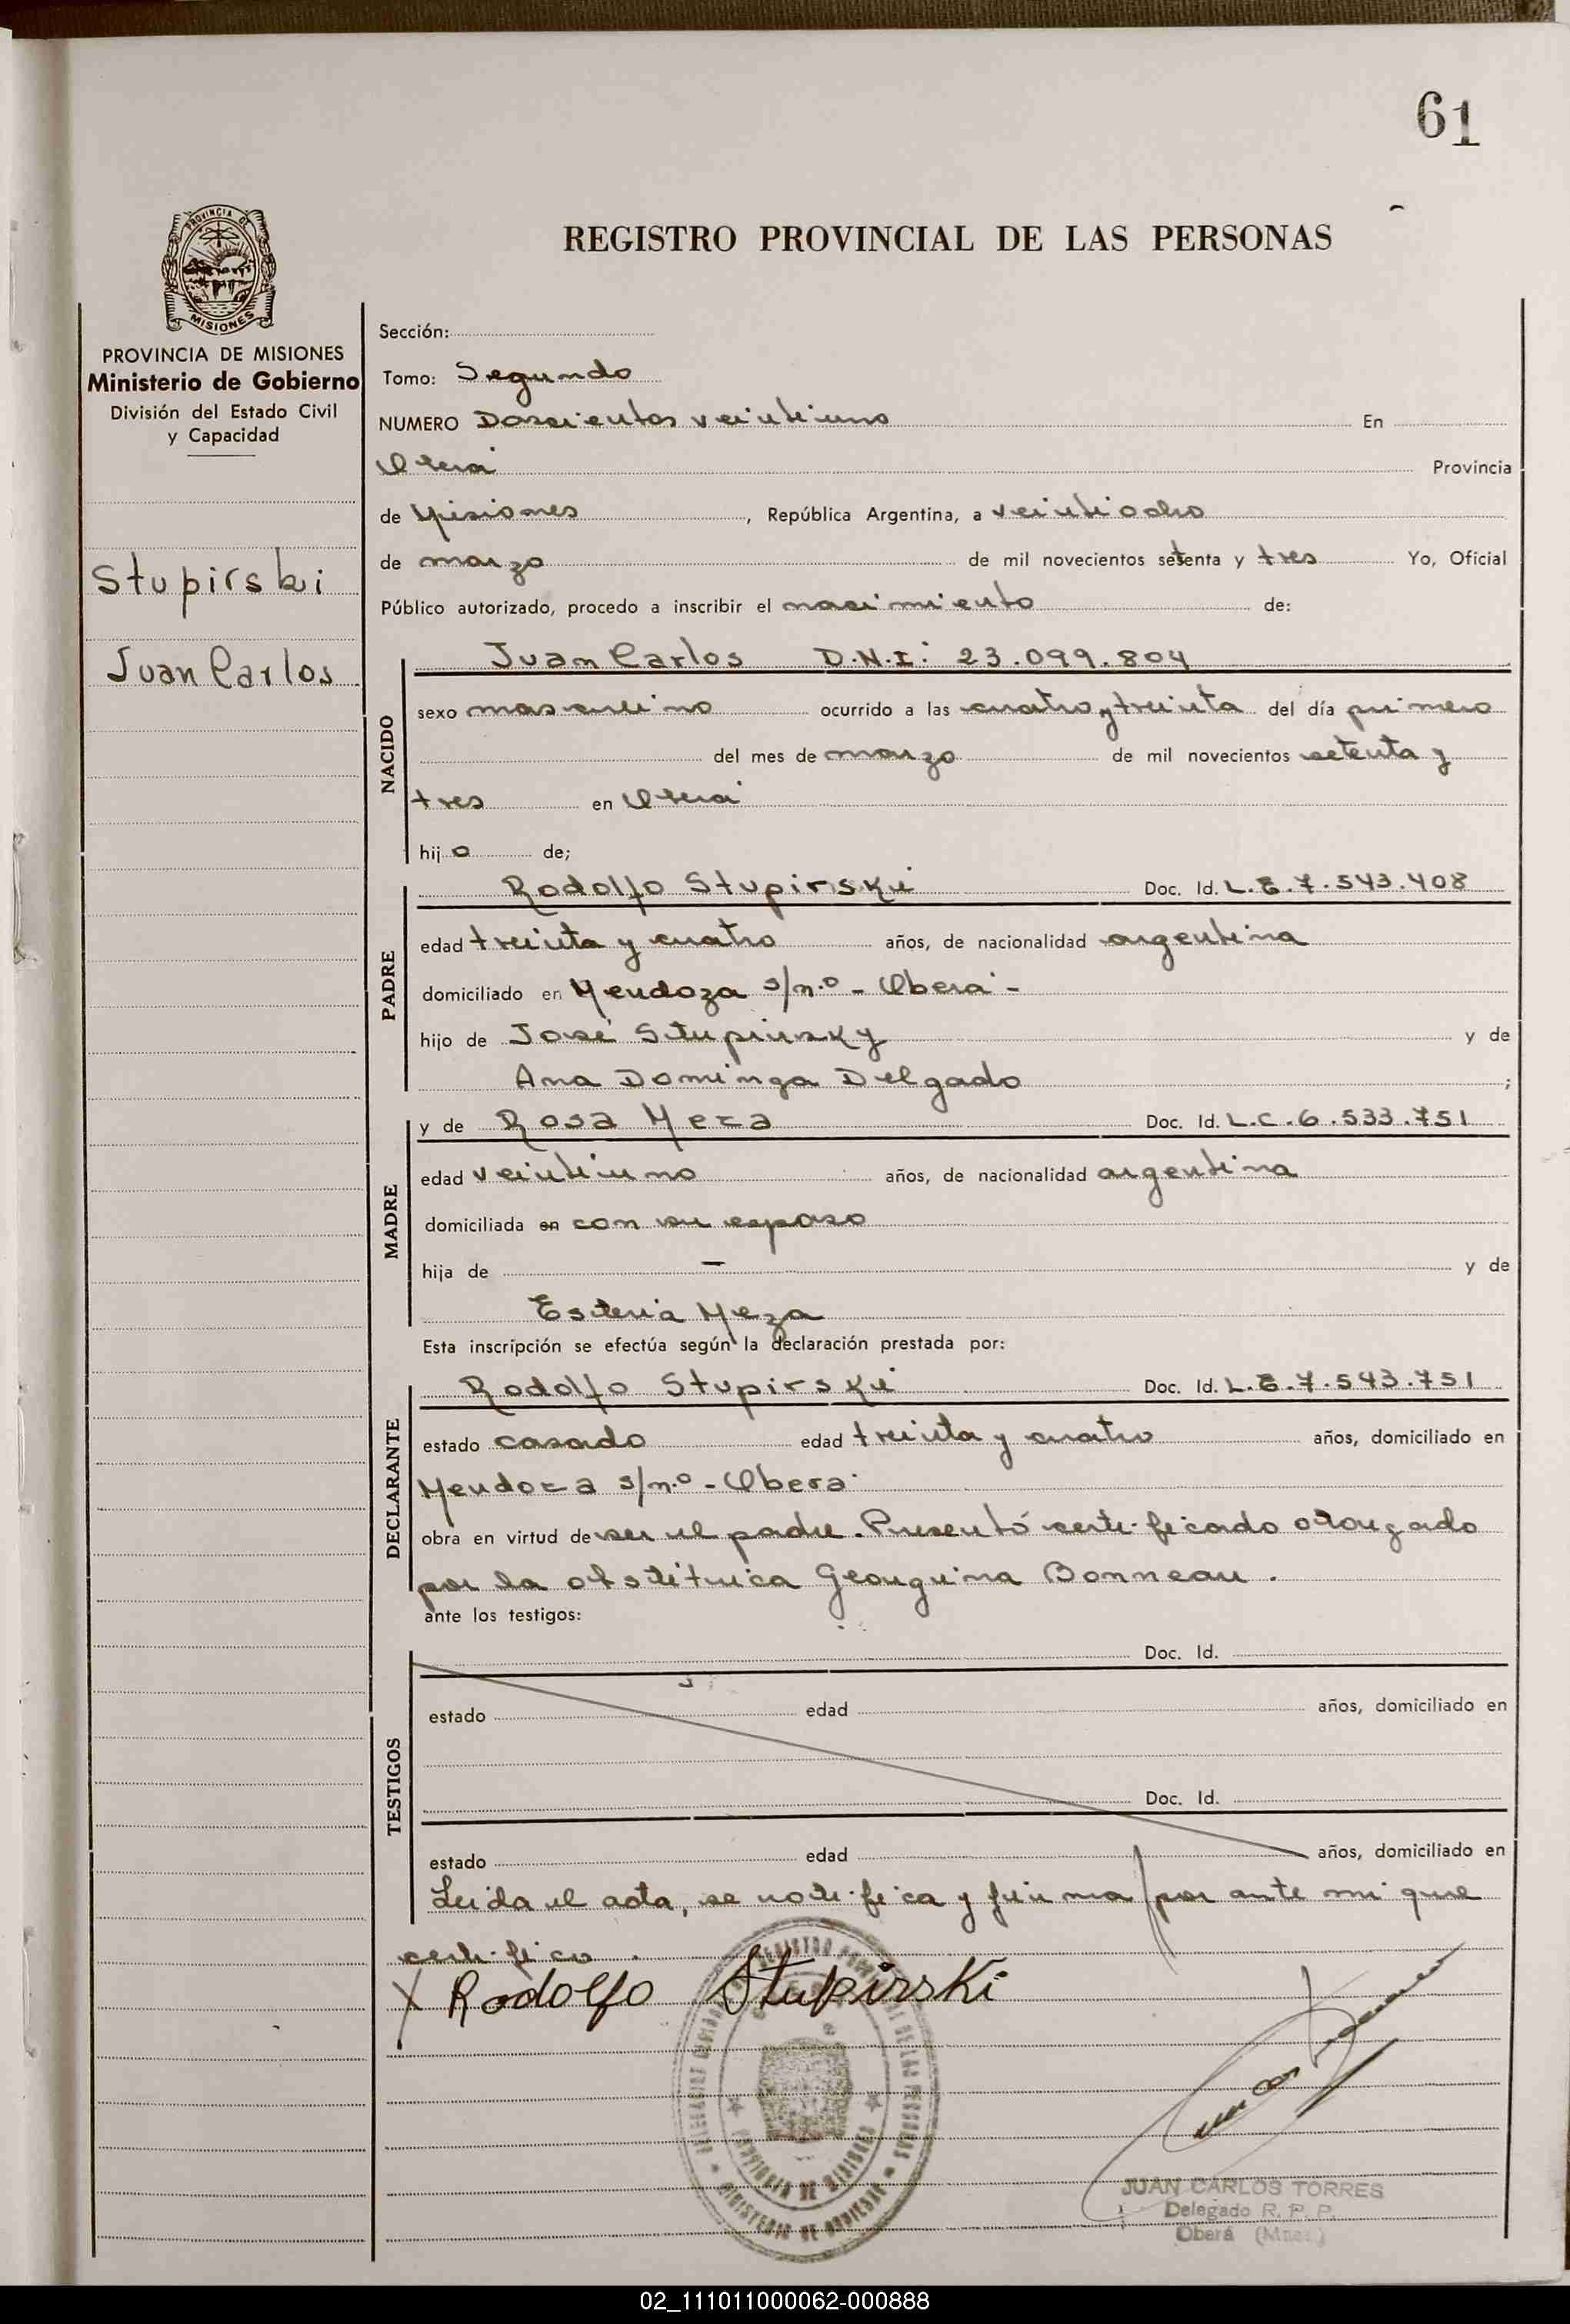 61
REGISTRO PROVINCIAL DE LAS PERSONAS
PROVINCIA DE
MISIONES
PROVINCIA DE MISIONES
Ministerio de Gobierno
División del Estado Civil
y Capacidad
Stupirski
Juan Carlos
Sección:
Tomo: Segundo
NUMERO Doscientos veintiuno En
Oberá Provincia
de Misiones, República Argentina, a veintiocho
de marzo de mil novecientos setenta y tres Yo, Oficial
Público autorizado, procedo a inscribir el nacimiento de:
NACIDO
Juan Carlos D.N.I: 23.099.804
sexo masculino ocurrido a las cuatro y treinta del día primero
del mes de marzo de mil novecientos setenta y
tres en Oberá
hijo de;
PADRE
Rodolfo Stupirski Doc. Id. L.E.7.543.408
edad treinta y cuatro años, de nacionalidad argentina
domiciliado en Mendoza s/n.º - Oberá -
hijo de José Stupirsky y de
Ana Dominga Delgado ;
MADRE
y de Rosa Meza Doc. Id. L.C.6.533.751
edad veintiuno años, de nacionalidad argentina
domiciliada en con su esposo
hija de — y de
Esteria Meza
Esta inscripción se efectúa según la declaración prestada por:
DECLARANTE
Rodolfo Stupirski Doc. Id. L.E.7.543.751
estado casado edad treinta y cuatro años, domiciliado en
Mendoza s/n.º - Oberá
obra en virtud de ser el padre. Presentó certificado otorgado
por la obstétrica Georguina Bonneau.
ante los testigos:
TESTIGOS
Doc. Id.
estado edad años, domiciliado en
Doc. Id.
estado edad años, domiciliado en
Leida el acta, se notifica y firma por ante mi que
certifico.
X Rodolfo Stupirski
REGISTRO PROVINCIAL DE LAS PERSONAS
PROVINCIA DE MISIONES
MINISTERIO DE GOBIERNO
JUAN CARLOS TORRES
Delegado R. P. P.
Oberá (Mnes.)
02_111011000062-000888